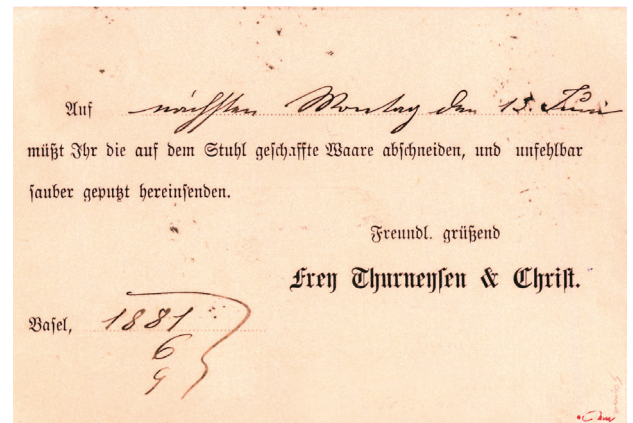 Auf nächsten Montag den 13. Juni
müßt Ihr die auf dem Stuhl geschaffte Waare abschneiden, und unfehlbar
sauber geputzt hereinsenden.
Freundl. grüßend
Frey Thurneysen & Christ.
Basel, 1881
6
9